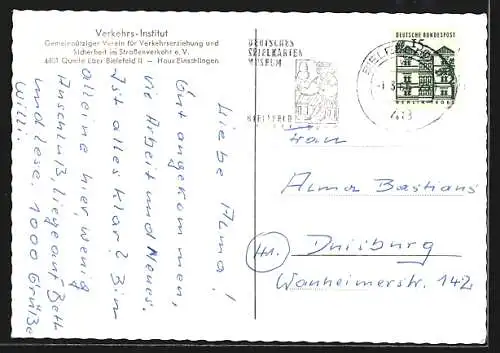 Verkehrs-Institut
Gemeinnütziger Verein für Verkehrserziehung und
Sicherheit im Straßenverkehr e. V.
4801 Quelle über Bielefeld II — Haus Einschlingen
Liebe Alma!
Gut angekommen,
die Arbeit und Neues.
Ist alles klar? Bin
alleine hier, wenig
Anschluß, liege auf Bett
und lese. 1000 Grüße
Willi.
DEUTSCHES
SPIELKARTEN
MUSEUM
BIELEFELD
BIELEFELD
DEUTSCHE BUNDESPOST
15
Frau
Alma Bastians
Duisburg
Wanheimerstr. 142